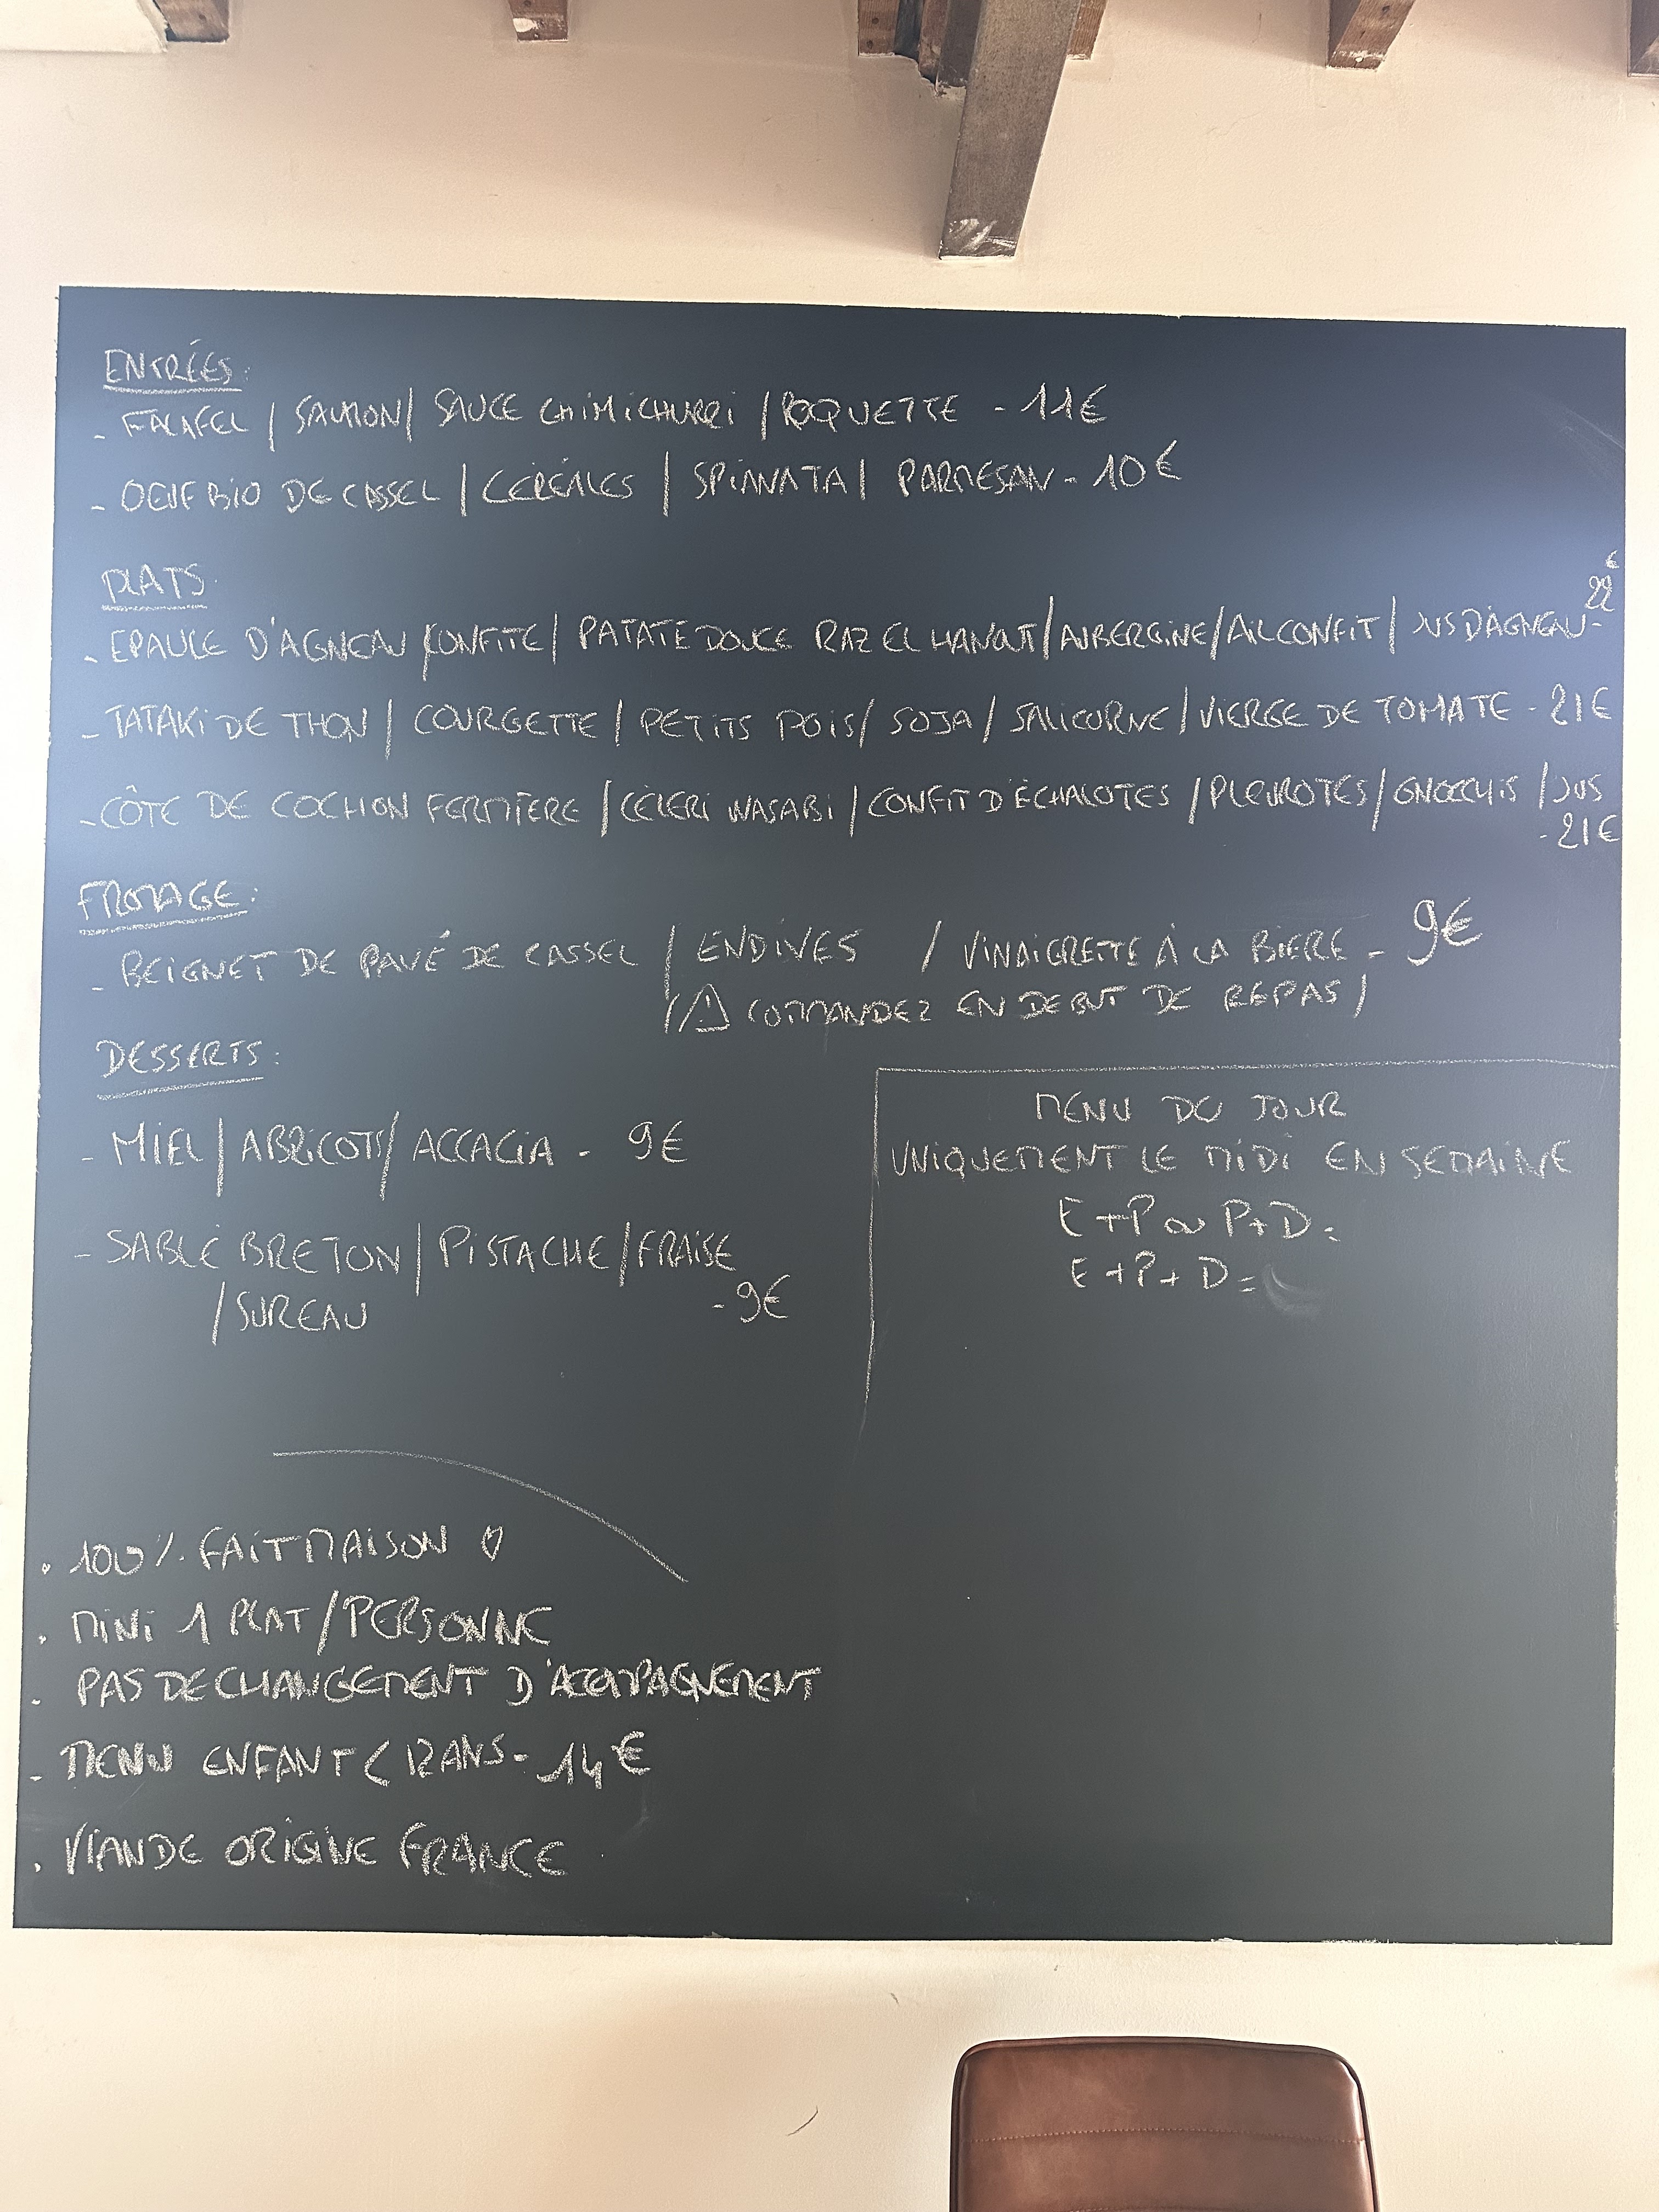 ENTRÉES:
- FALAFEL / SAUMON / SAUCE CHIMICHURRI / ROQUETTE - 11€
- OEUF BIO DE CASSEL / CÉRÉALES / SPIANATA / PARMESAN - 10€
PLATS
€
22
- EPAULE D'AGNEAU CONFITE / PATATE DOUCE RAZ EL HANOUT / AUBERGINE / AIL CONFIT / JUS D'AGNEAU -
- TATAKI DE THON / COURGETTE / PETITS POIS / SOJA / SALICORNE / VIERGE DE TOMATE - 21€
- CÔTE DE COCHON FERMIÈRE / CÉLERI WASABI / CONFIT D'ÉCHALOTES / PLEUROTES / GNOCCHIS / JUS
- 21€
FROMAGE:
- BEIGNET DE PAVÉ DE CASSEL / ENDIVES / VINAIGRETTE À LA BIERE - 9€
(⚠ COMMANDEZ EN DEBUT DE REPAS)
DESSERTS:
- MIEL / ABRICOTS / ACCACIA - 9€
- SABLÉ BRETON / PISTACHE / FRAISE
/ SUREAU - 9€
MENU DU JOUR
UNIQUEMENT LE MIDI EN SEMAINE
E+P ou P+D =
E+P+D =
. 100% FAIT MAISON ♡
. MINI 1 PLAT / PERSONNE
. PAS DE CHANGEMENT D'ACCOMPAGNEMENT
- MENU ENFANT < 12 ANS - 14€
. VIANDE ORIGINE FRANCE